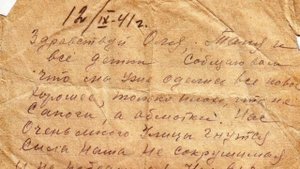 12/IX-41 г.
Здравствуй Оля, Маня и
все дети Сообщаю вам
что мы уже оделись все новое
хорошее, только плохо, что не
Сапоги, а обмотки. Нас
Очень много Улицы гнутся
Сила наша не сокрушимая